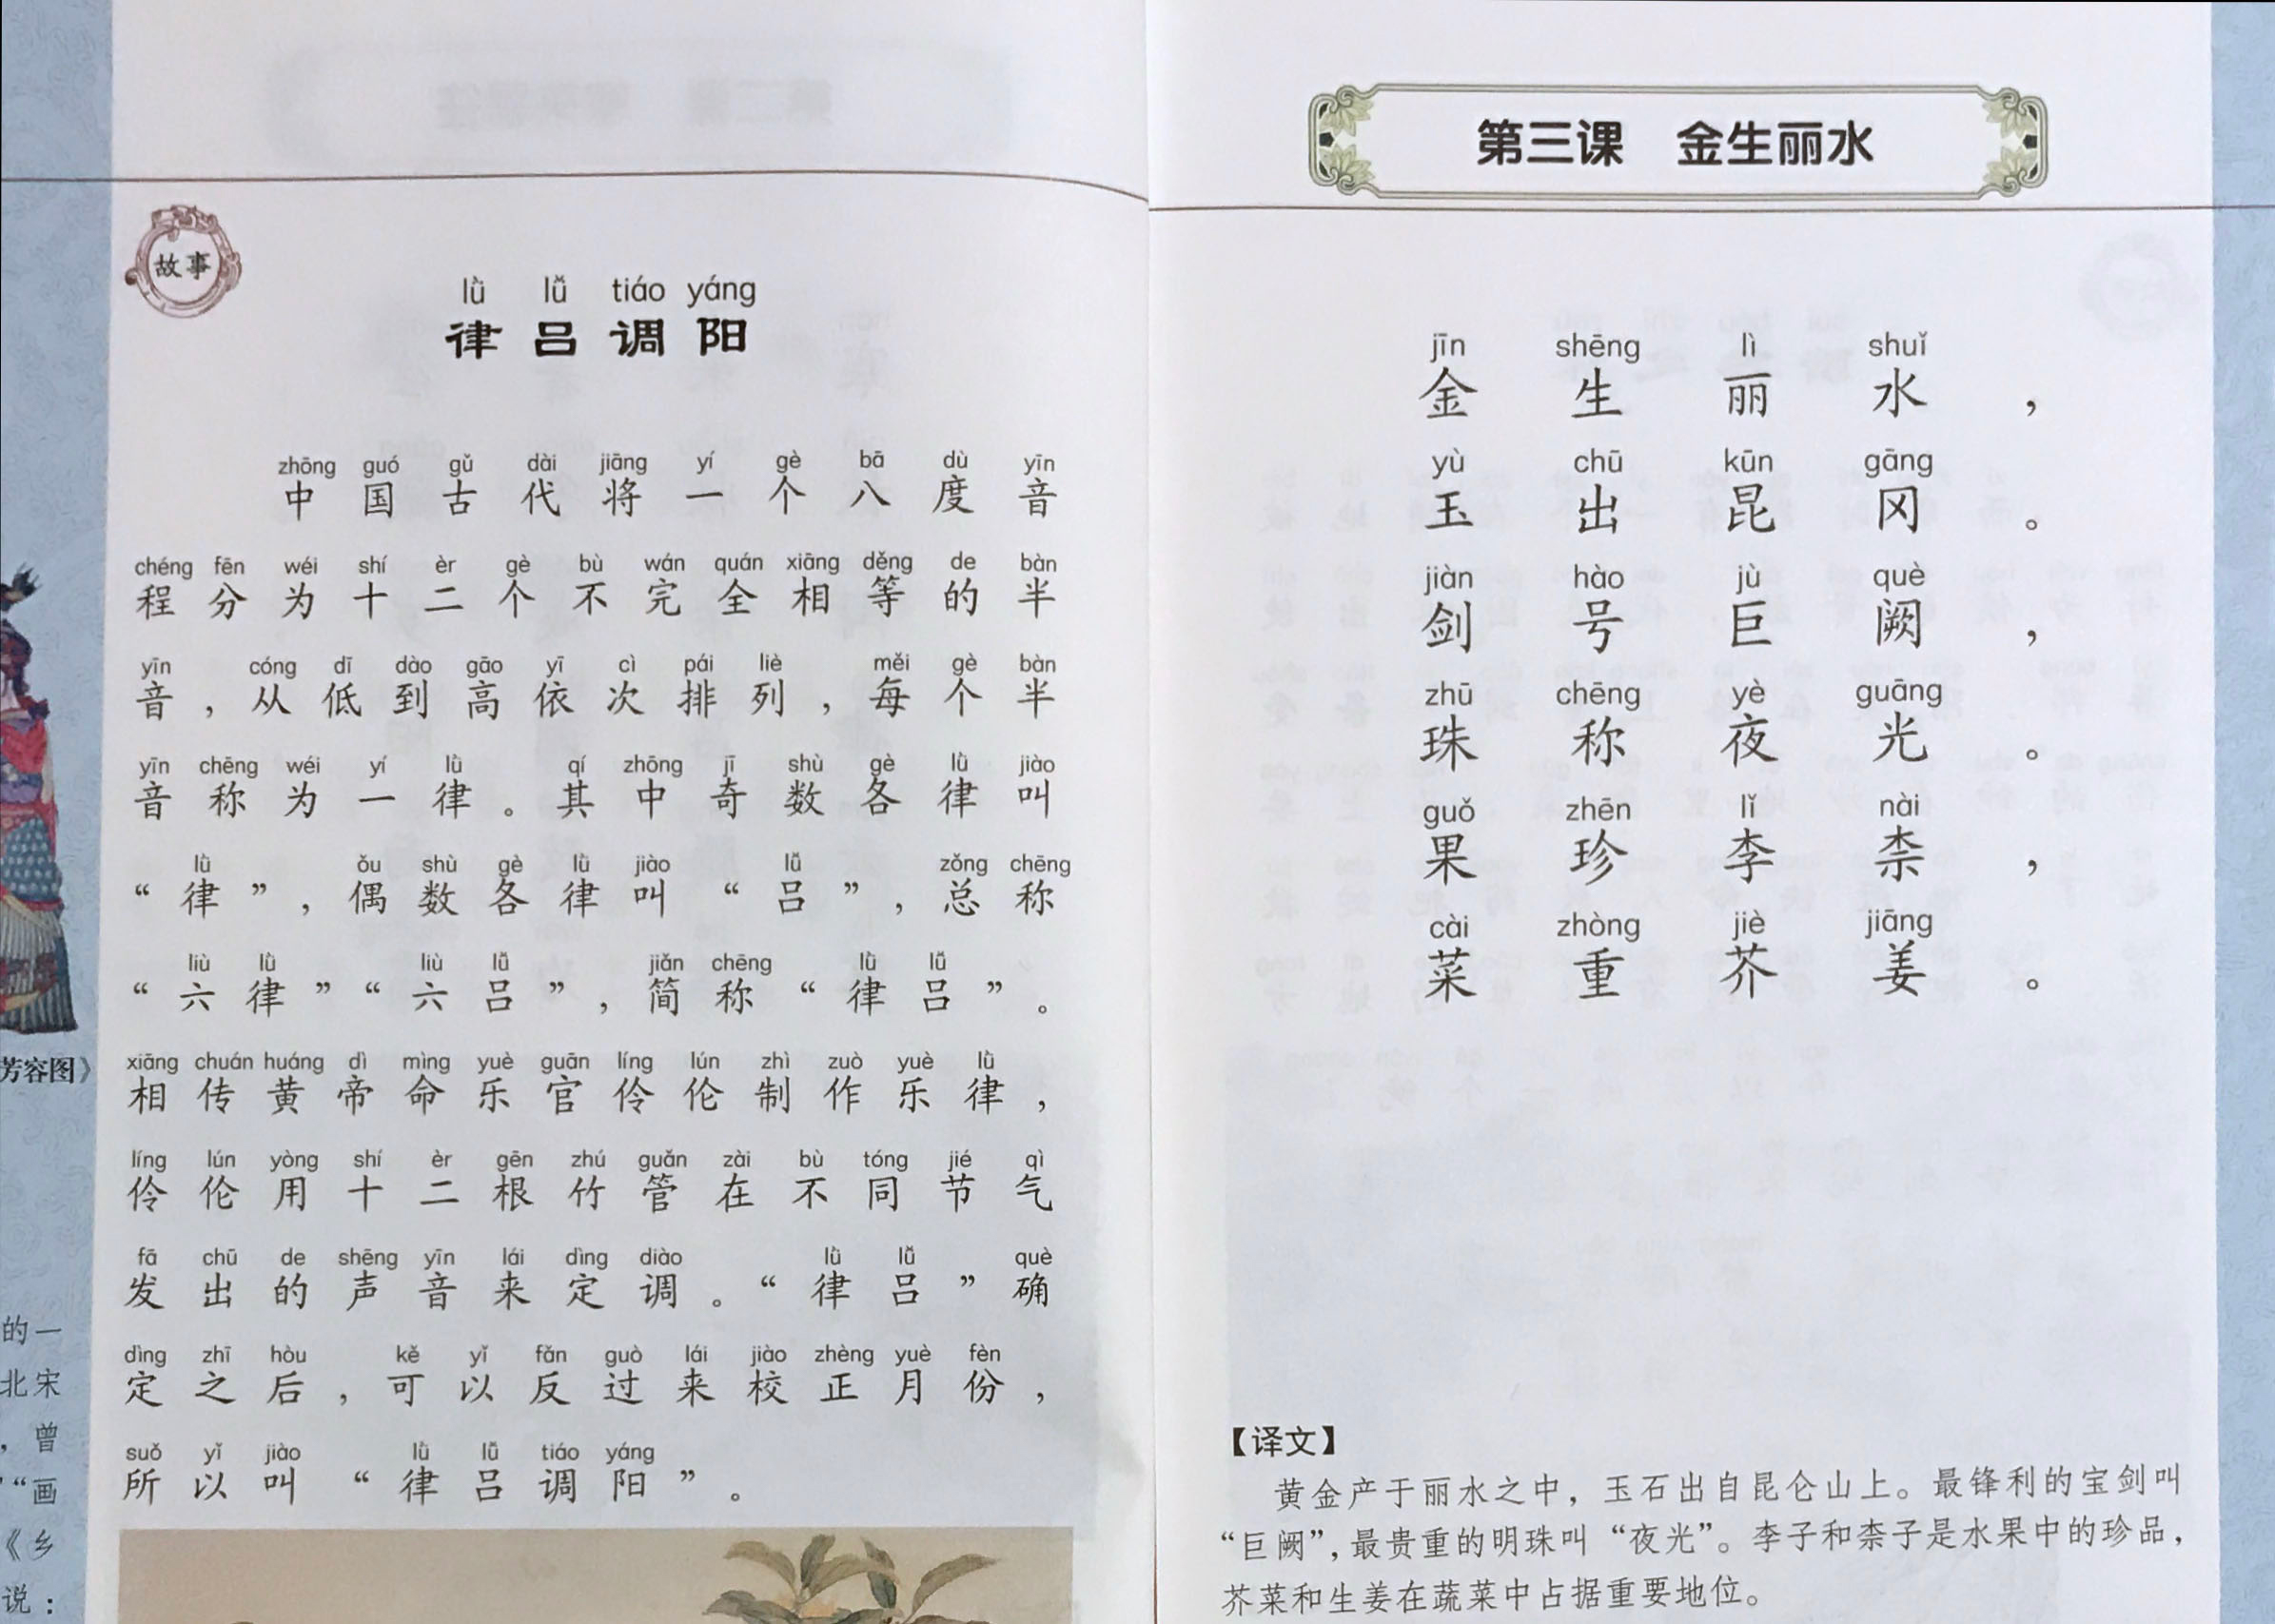 故事
lǜ lǚ tiáo yáng
律吕调阳
zhōng guó gǔ dài jiāng yí gè bā dù yīn
中国古代将一个八度音
chéng fēn wéi shí èr gè bù wán quán xiāng děng de bàn
程分为十二个不完全相等的半
yīn cóng dī dào gāo yī cì pái liè měi gè bàn
音，从低到高依次排列，每个半
yīn chēng wéi yí lǜ qí zhōng jī shù gè lǜ jiào
音称为一律。其中奇数各律叫
lǜ ǒu shù gè lǜ jiào lǚ zǒng chēng
“律”，偶数各律叫“吕”，总称
liù lǜ liù lǚ jiǎn chēng lǜ lǚ
“六律”“六吕”，简称“律吕”。
xiāng chuán huáng dì mìng yuè guān líng lún zhì zuò yuè lǜ
相传黄帝命乐官伶伦制作乐律，
líng lún yòng shí èr gēn zhú guǎn zài bù tóng jié qì
伶伦用十二根竹管在不同节气
fā chū de shēng yīn lái dìng diào lǜ lǚ què
发出的声音来定调。“律吕”确
dìng zhī hòu kě yǐ fǎn guò lái jiào zhèng yuè fèn
定之后，可以反过来校正月份，
suǒ yǐ jiào lǜ lǚ tiáo yáng
所以叫“律吕调阳”。
芳容图》
的一
北宋
，曾
“画
《乡
说：
第三课 金生丽水
jīn shēng lì shuǐ
金生丽水，
yù chū kūn gāng
玉出昆冈。
jiàn hào jù què
剑号巨阙，
zhū chēng yè guāng
珠称夜光。
guǒ zhēn lǐ nài
果珍李柰，
cài zhòng jiè jiāng
菜重芥姜。
【译文】
黄金产于丽水之中，玉石出自昆仑山上。最锋利的宝剑叫
“巨阙”，最贵重的明珠叫“夜光”。李子和柰子是水果中的珍品，
芥菜和生姜在蔬菜中占据重要地位。